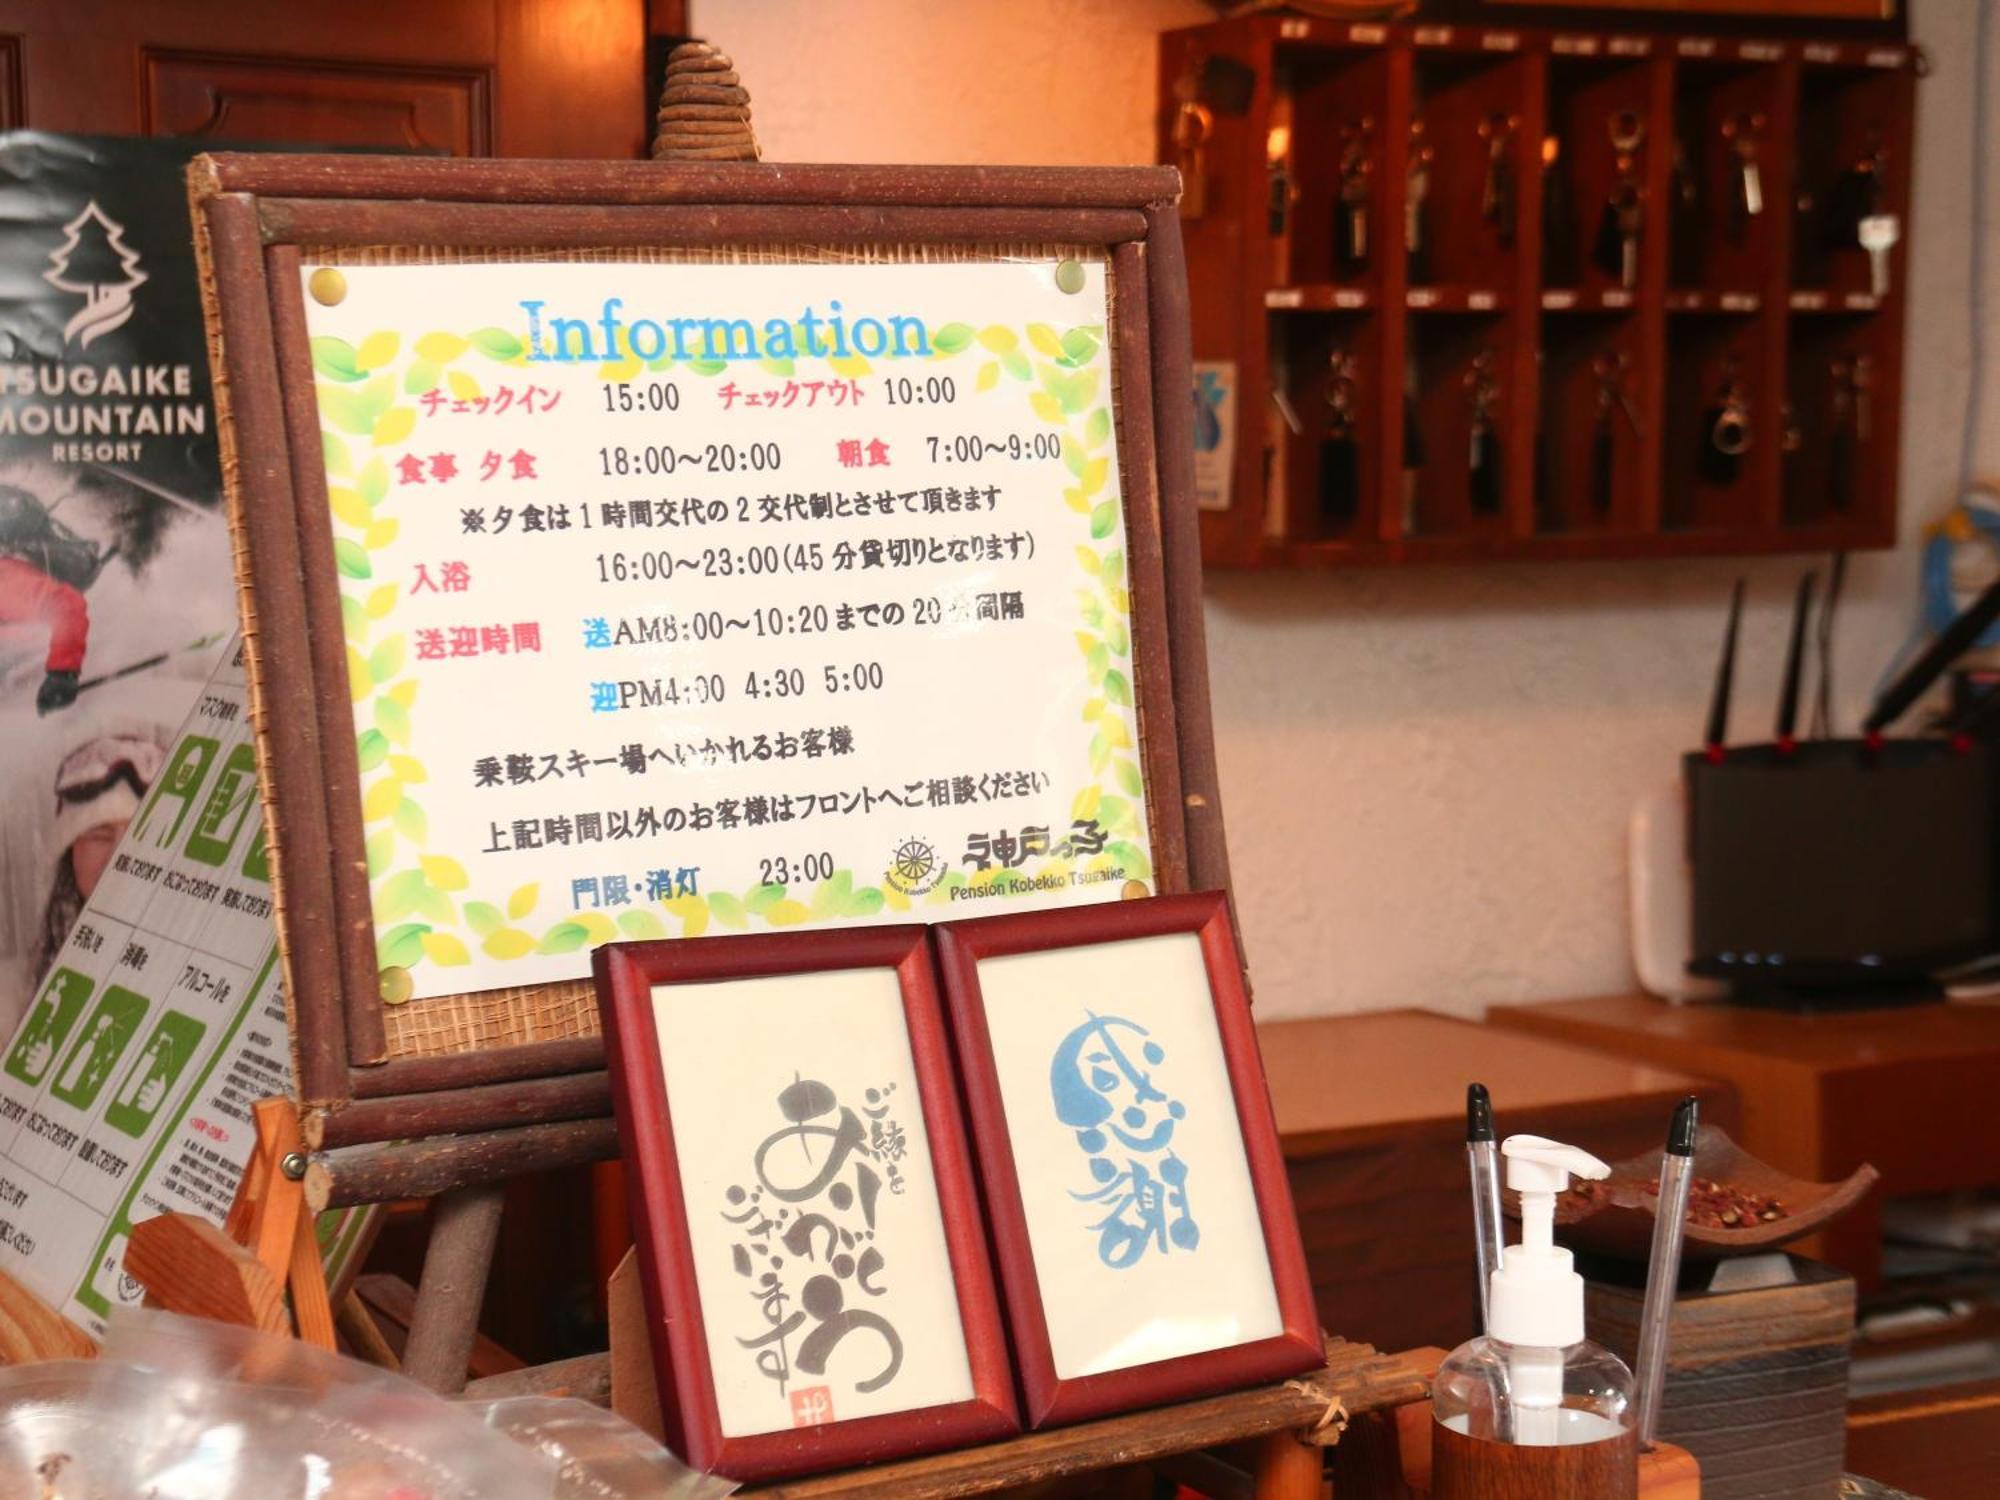 Information
チェックイン 15:00 チェックアウト 10:00
食事 夕食 18:00～20:00 朝食 7:00～9:00
※夕食は1時間交代の2交代制とさせて頂きます
入浴 16:00～23:00(45分貸切りとなります)
送迎時間 送AM8:00～10:20までの20分間隔
迎PM4:00 4:30 5:00
乗鞍スキー場へいかれるお客様
上記時間以外のお客様はフロントへご相談ください
門限・消灯 23:00
神戸っ子
Pension Kobekko Tsugaike
ご縁を
ありがとう
ございます
感謝
TSUGAIKE
MOUNTAIN
RESORT
手洗いを
消毒を
アルコールを